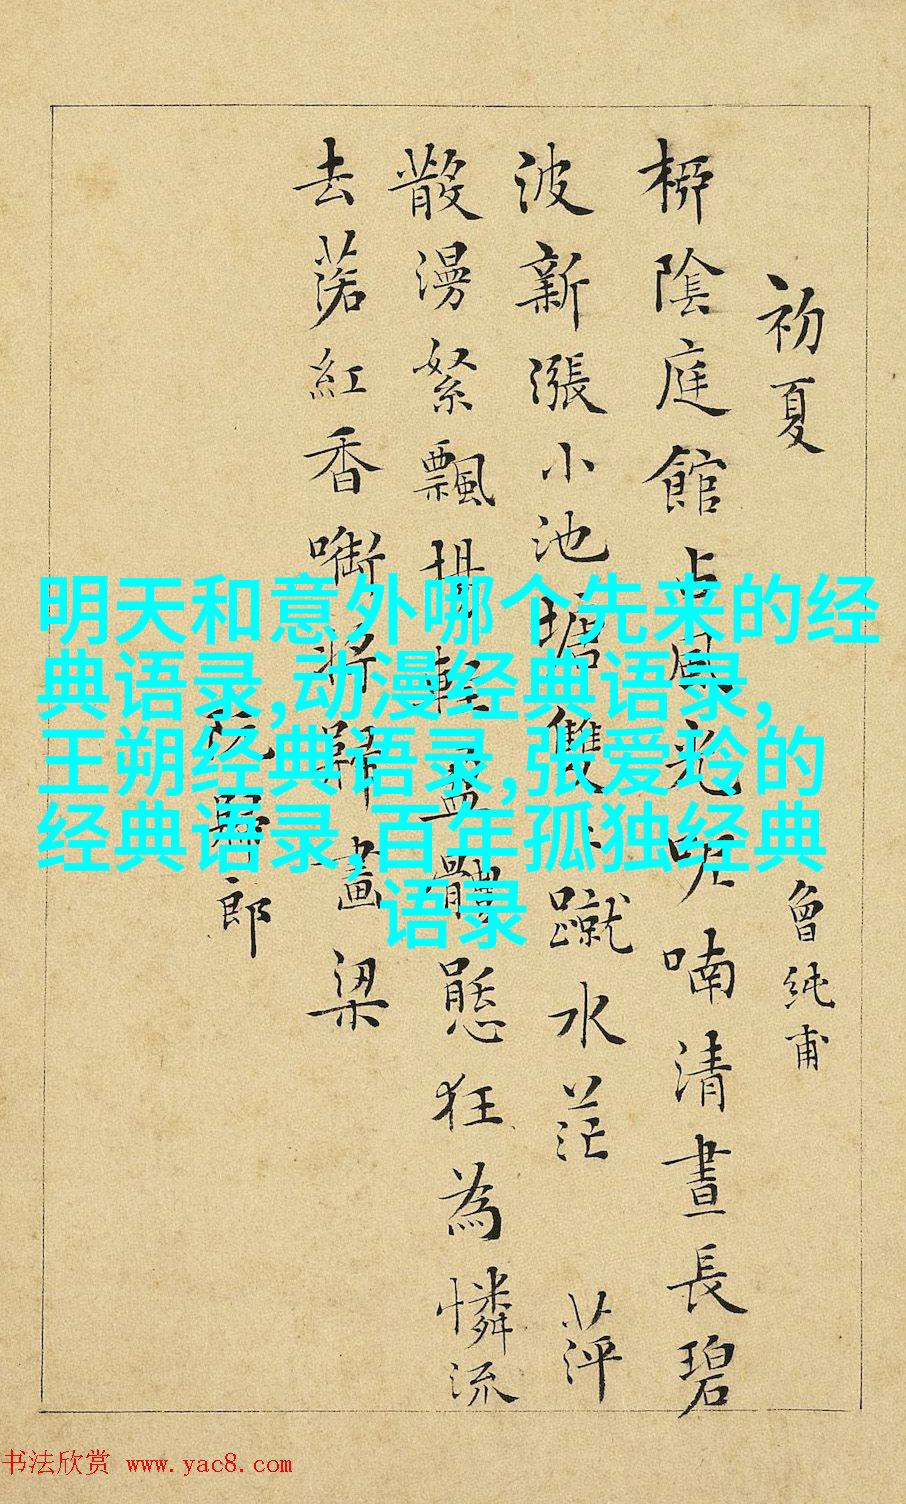 初夏 曾純甫
柳陰庭館占風光呢喃清晝長碧
波新漲小池塘雙〻蹴水茫 萍
散漫絮飄揚輕盈體態狂為憐流
去落紅香啣將歸畫梁
阮 郎
明天和意外哪个先来的经
典语录,动漫经典语录,
王朔经典语录,张爱玲的
经典语录,百年孤独经典
语录
书法欣赏 www.yac8.com